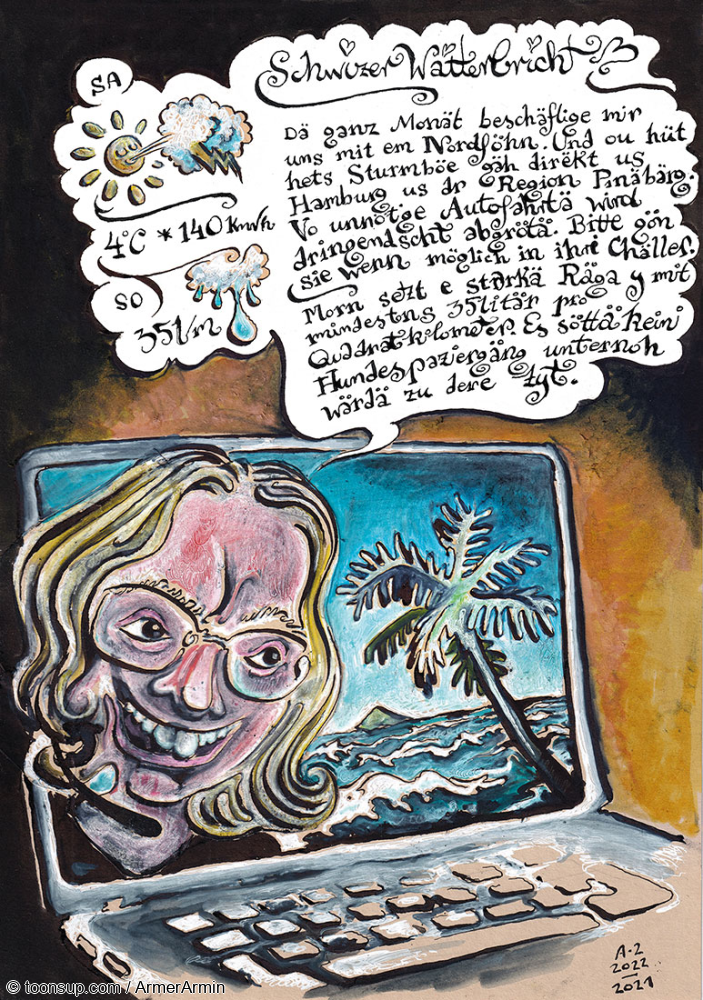 Schwizer Wätterbricht
SA
4°C * 140 Km/h
SO
35l/m
Dä ganz Monät beschäftige mir
uns mit em Nordföhn. Und ou hüt
hets Sturmböe gäh direkt us
Hamburg us dr Region Pinäbärg.
Vo unnötige Autofahrtä wird
dringendscht abgrötä. Bitte gön
sie wenn möglich in ihri Challer.
Morn setzt e starkä Räga y mit
mindestns 35litär pro
Quadratkilometer. Es söttä kein
Hundespaziergäng unternoh
wärdä zu dere Zyt.
A·2
2022
2021
© toonsup.com / ArmerArmin